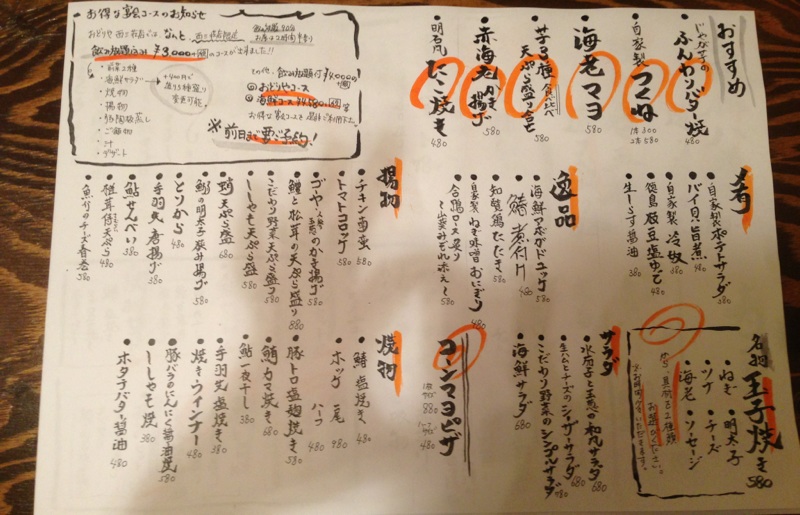 おすすめ
じゃが芋の
ふんわりバター焼
480
自家製
つくね
1本 300
2本 580
海老マヨ
580
芋3種食べ比べ
天ぷら盛り合せ
580
赤海老かき揚げ
580
明石風
たこ焼き
480
お得な宴会コースのお知らせ
飲み放題
¥3,000
のコースが出来ました!!
・前菜2種
・海鮮サラダ
・焼物
・揚物
・ご飯物
・汁
・デザート
その他、飲み放題付¥4,000
おどりやコース
海鮮コース ¥4,580
※前日までに要ご予約!
肴
・自家製ポテトサラダ
380
・バイ貝旨煮
480
・自家製冷奴
380
・枝豆塩ゆで
380
・生しらす醤油
380
逸品
・海鮮マーボがドュッケ
580
・鯖煮付け
480
・知覧鶏たたき
580
・自家製ねぎ味噌おにぎり
480
・合鴨ロース炙り
580
揚物
・チキン南蛮
580
・トマトコロッケ
・ゴーヤ、玉葱のかき揚げ
580
・鱧と松茸の天ぷら盛り
880
・こだわり野菜天ぷら盛り
580
・ししゃも天ぷら盛
580
・天ぷら盛
680
・鰯の明太子挟み揚げ
580
・とりから
480
・手羽先唐揚げ
380
・鮎せんべい
380
・天ぷら
480
・魚介のチーズ春巻
580
名物 玉子焼き
580
・ねぎ
・明太子
・ツナ
・チーズ
・海老
・ソーセージ
から、具材を2種類
お選びください。
サラダ
・水茄子と玉葱の和風サラダ
680
・生ハムとチーズのシーザーサラダ
680
・こだわり野菜のシンプルサラダ
580
・海鮮サラダ
680
コーンマヨピザ
880
480
焼物
・鯖塩焼き
480
・ホッケ
一尾
980
ハーフ
480
・豚トロ塩麹焼き
580
・鮪カマ焼き
680
・鮎一夜干し
380
・手羽先塩焼き
380
・焼きウインナー
480
・豚バラのにんにく醤油焼
580
・ししゃも焼
380
・ホタテバター醤油
480